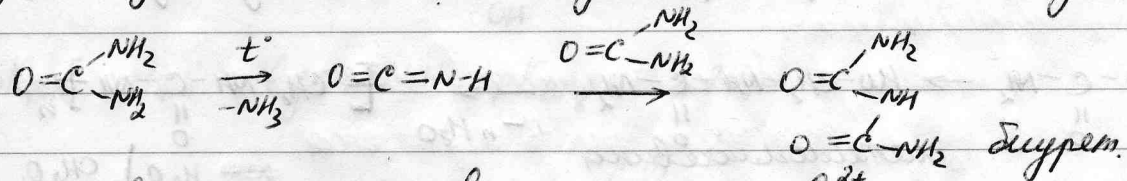 O=C NH₂ NH₂ t° -NH₃ O=C=N-H O=C NH₂ NH₂ O=C NH₂ NH
O=C-NH₂ биурет.